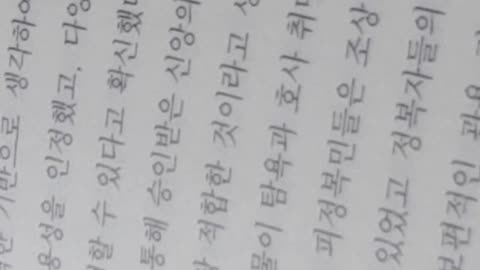 기반으로 생각하여
인정했고, 다양
할 수 있다고 확신했다
통해 승인받은 신앙의
적합한 것이라고
탐욕과 호사 취
피정복민들은 조상
있었고 정복자들의
보편적인 관용